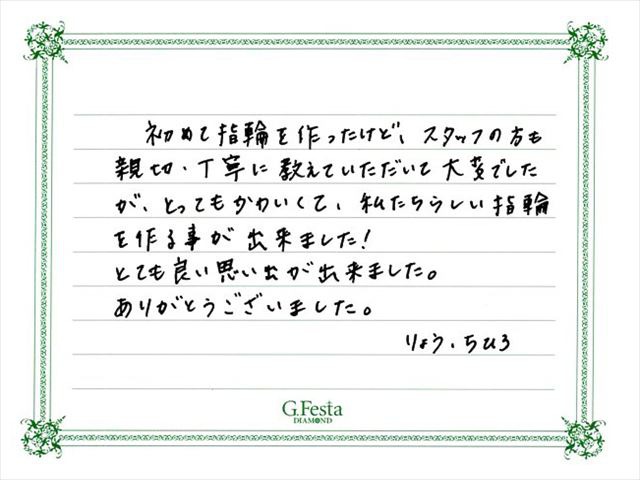 初めて指輪を作ったけど、スタッフの方も
親切・丁寧に教えていただいて大変でした
が、とってもかわいくて、私たちらしい指輪
を作る事が出来ました！
とても良い思い出が出来ました。
ありがとうございました。
りょう、ちひろ
G.Festa
DIAMOND